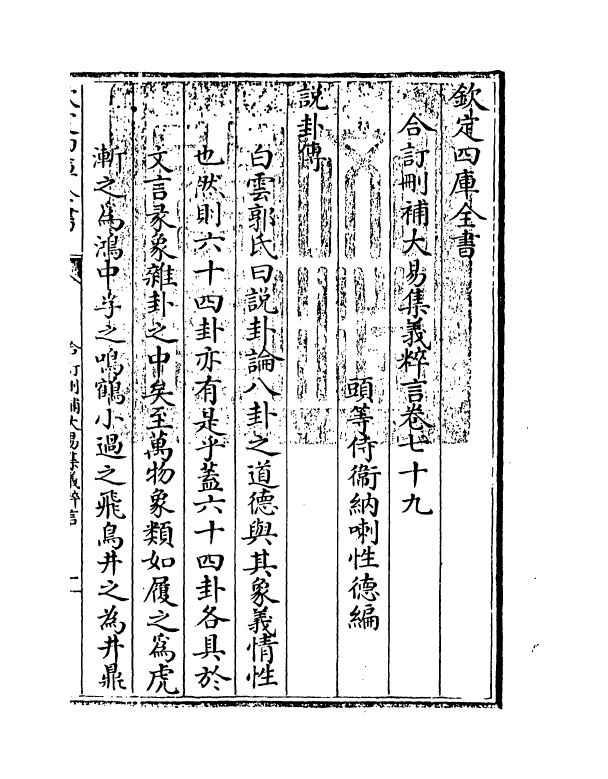 欽定四庫全書
合訂刪補大易集義粹言卷七十九
頭等侍衞納喇性德編
說卦傳
白雲郭氏曰說卦論八卦之道德與其象義情性
也然則六十四卦亦有是乎蓋六十四卦各具於
文言彖象雜卦之中矣至萬物象類如履之為虎
漸之為鴻中孚之鳴鶴小過之飛鳥井之為井鼎
合訂刪補大易集義粹言